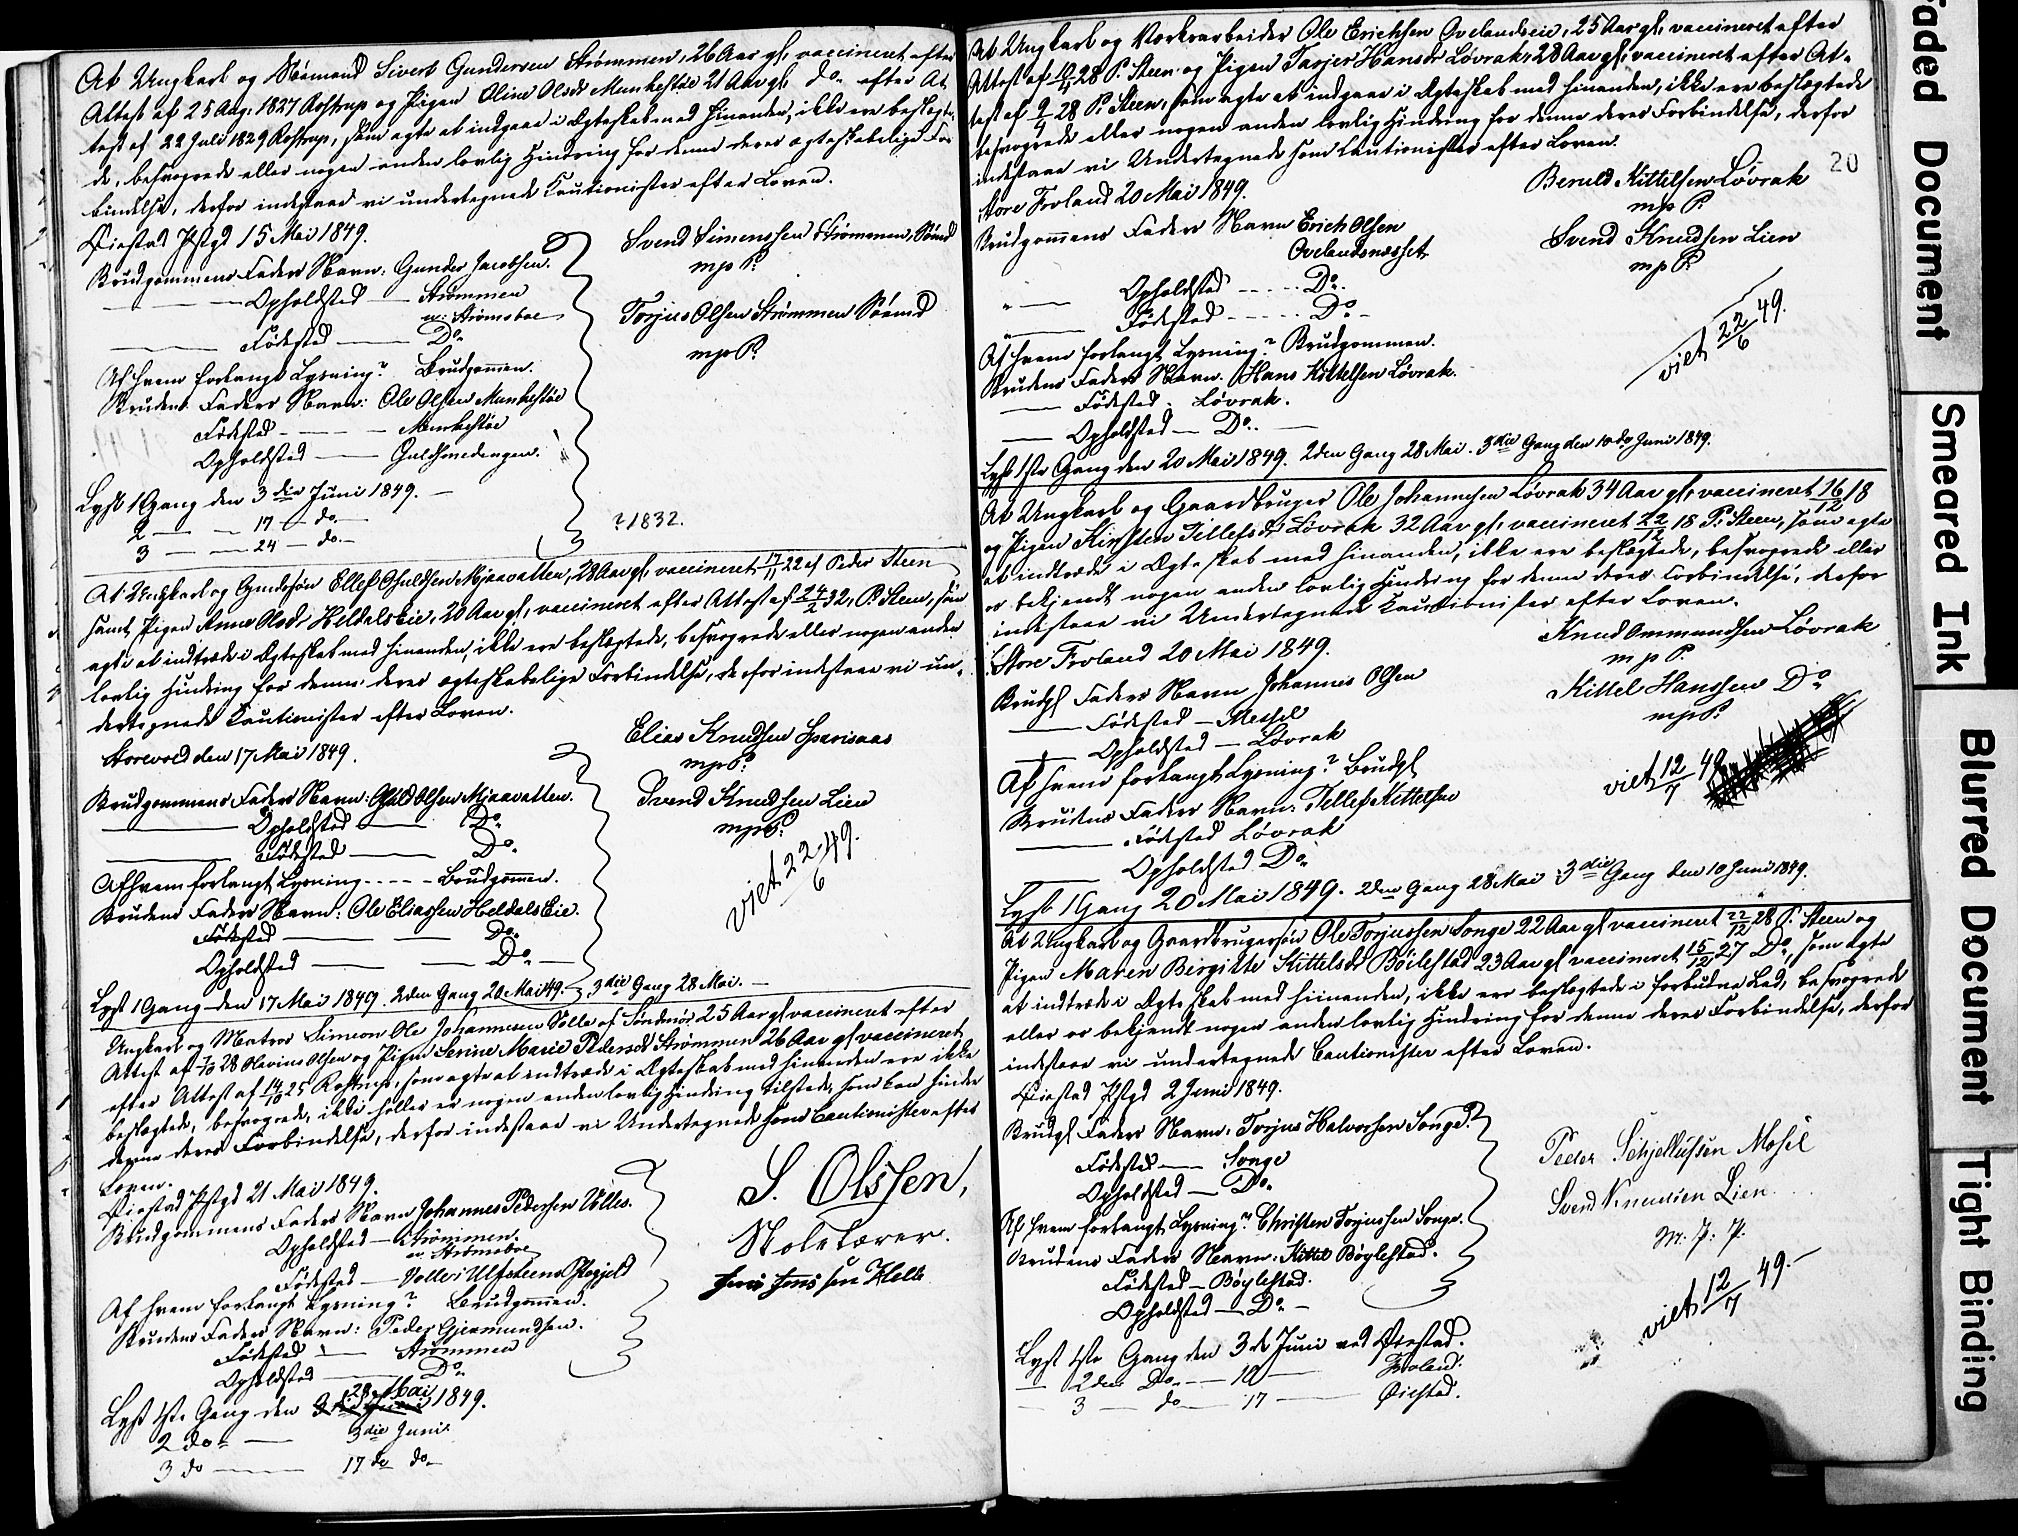 At Ungkarl og Sømand Sivert Gundersen Strømmen, 26 Aar gl, vaccineret efter
Attest af 25 Aug: 1827 Rostrup og Pigen Oline Olsdr Munkestøe 21 Aar gl, do efter At-
test af 22 Juli 1829 Rostrup, som agte at indgaae i Ægteskab med hinanden, ikke ere beslægte-
de, besvogrede eller nogen anden lovlig Hindring for denne deres ægteskabelige For-
bindelse, derfor indestaae vi undertegnede Cautionister efter Loven.
Øiestad Pstgd 15 Mai 1849.
Svend Simonssen Strømmen, Sømd
mpP:
Brudgommens Faders Navn: Gunder Jacobsen.
Opholdsted — Strømmen
Torjus Olsen Strømmen Sømd
mpP:
Strømsboe
Fødested — Do
Af hvem forlangt Lysning? Brudgommen.
Brudens Faders Navn: Ole Olsen Munkestøe
Fødested — Munkestøe
Opholdsted — Guldsmedengen.
Lyst 1 Gang den 3die Juni 1849. —
2 — 17 — do —
3 — 24 — do —
? 1832.
At Ungkarl og Gmdssøn Ellef Ohuldsen Mjaavatten, 28 Aar gl, vaccineret 17/11 22 af Peder Steen
samt Pigen Anne Olsdr Heldalseie, 20 Aar gl, vaccineret efter Attest af 24/2 32, P. Steen, som
agte at indtræde i Ægteskab med hinanden, ikke ere beslægtede, besvogrede eller nogen anden
lovlig Hindring for denne deres ægteskabelige Forbindelse, derfor indestaae vi un-
dertegnede Cautionister efter Loven.
Storevold den 17 Mai 1849.
Elias Knudsen
mpP:
Svend Knudsen Lien
mpP:
Brudgommens Faders Navn: Olsen Mjaavatten.
Opholdsted — Do
Fødested — Do
viet 22/6 49.
Af hvem forlangt Lysning - - - - Brudgommen.
Brudens Faders Navn: Ole Eliassen Heldalseie.
Fødested — Do
Opholdsted — Do —
Lyst 1 Gang den 17 Mai 1849. 2den Gang 20 Mai 49. 3die Gang 28 Mai. —
Ungkarl og Matros Simeon Ole Johannesen Volle af Søndmør 25 Aar gl vaccineret efter
Attest af 7/10 28 Olsen og Pigen Serine Marie Pedersdr Strømmen 26 Aar gl vaccineret
efter Attest af 14/10 25 Rostrup, som agte at indtræde i Ægteskab med hinanden ere ikke
beslægtede, besvogrede, ikke heller er nogen anden lovlig Hindring tilstede, som kan hindre
denne deres Forbindelse, derfor indestaae vi Undertegnede som Cautionister efter
Loven.
Øiestad Pstgd 21 Mai 1849.
S. Olssen,
Skolelærer.
Jens Jenssen Helle
Brudgommens Faders Navn Johannes Pedersen Volles.
Opholdsted — Strømmen.
Strømsboe
Fødested — Volle i Ulfsteens Pstgjeld
Af hvem forlangt Lysning? Brudgommen.
Brudens Faders Navn: Peder Gjermundsen.
Fødested — Strømmen
Opholdsted — Do
28 Mai
Lyst 1ste Gang den 1849.
2 do — 3die Juni
3 do — 17 de do
At Ungkarl og Værkarbeider Ole Erichsen Ovelandseie, 25 Aar gl, vaccineret efter
Attest af 10/4 28 P. Steen og Pigen Tarjer Hansdr Løvrak, 28 Aar gl, vaccineret efter At-
test af 9/4 28 P. Steen, som agte at indgaae i Ægteskab med hinanden, ikke ere beslægtede
besvogrede eller nogen anden lovlig Hindring for denne deres Forbindelse, derfor
indestaae vi Undertegnede som Cautionister efter Loven.
20
Store Froland 20 Mai 1849.
Beruld Kittelsen Løvrak
mp P.
Svend Knudsen Lien
mpP:
Brudgommens Faders Navn Erich Olsen
Ovelandsnæsset
Opholdsted - - - - Do.
Fødested - - - - Do —
viet 22/6 49.
Af hvem forlangt Lysning? Brudgommen.
Brudens Faders Navn. Hans Kittelsen Løvrak.
Fødested. Løvrak.
Opholdsted — Do.
Lyst 1ste Gang den 20 Mai 1849. 2den Gang 28 Mai. 3die Gang den 10de Juni 1849.
At Ungkarl og Gaardbruger Ole Johannesen Løvrak 34 Aar gl, vaccineret 16/12 18
og Pigen Kirsten Tellefsdr Løvrak 32 Aar gl, vaccineret 22/12 18 P. Steen, som agte
at indtræde i Ægteskab med hinanden, ikke ere beslægtede, besvogrede eller
er bekjendt nogen anden lovlig Hindring for denne deres Forbindelse, derfor
indestaae vi Undertegnede Cautionister efter Loven.
Store Froland 20 Mai 1849.
Knud Ommundsen Løvrak
mp P.
Kittel Hanssen Do
mpP:
Brudgs Faders Navn Johannes Olsen
Fødested — Messel
Opholdsted — Løvrak
viet 12/7 49
Af hvem forlangt Lysning? Brudg
Brudens Faders Navn: Tellef Kittelsen
Fødested Løvrak
Opholdsted Do
Lyst 1 Gang 20 Mai 1849. 2den Gang 28 Mai 3die Gang den 10 Juni 1849.
At Ungkarl og Gaardbrugersøn Ole Torjussen Songe 22 Aar gl vaccineret 22/12 28 P. Steen og
Pigen Maren Birgitte Kittelsdr Böilestad 23 Aar gl vaccineret 15/12 27 Do, som agte
at indtræde i Ægteskab med hinanden, ikke ere beslægtede i forbudne Led, besvogrede
eller er bekjendt nogen anden lovlig Hindring for denne deres Forbindelse, derfor
indestaae vi undertegnede Cautionister efter Loven.
Øiestad Pstgd 2 Juni 1849.
Brudgs Faders Navn. Torjus Halvorsen Songe.
Peder Schjellufsen Mosel
Svend Knudsen Lien
M. P. P.
Fødested — Songe
Opholdsted — Do
Af hvem forlangt Lysning? Christen Torjussen Songe.
Brudens Faders Navn: Kittel Bøylestad.
Fødested — Bøylestad.
Opholdsted — Do —
viet 12/7 49.
Lyst 1ste Gang den 3de Juni ved Øiestad.
2den Do — 10 — Froland.
3 do — 17 — Øiestad.
Faded Document
Smeared Ink
Blurred Document
Tight Binding